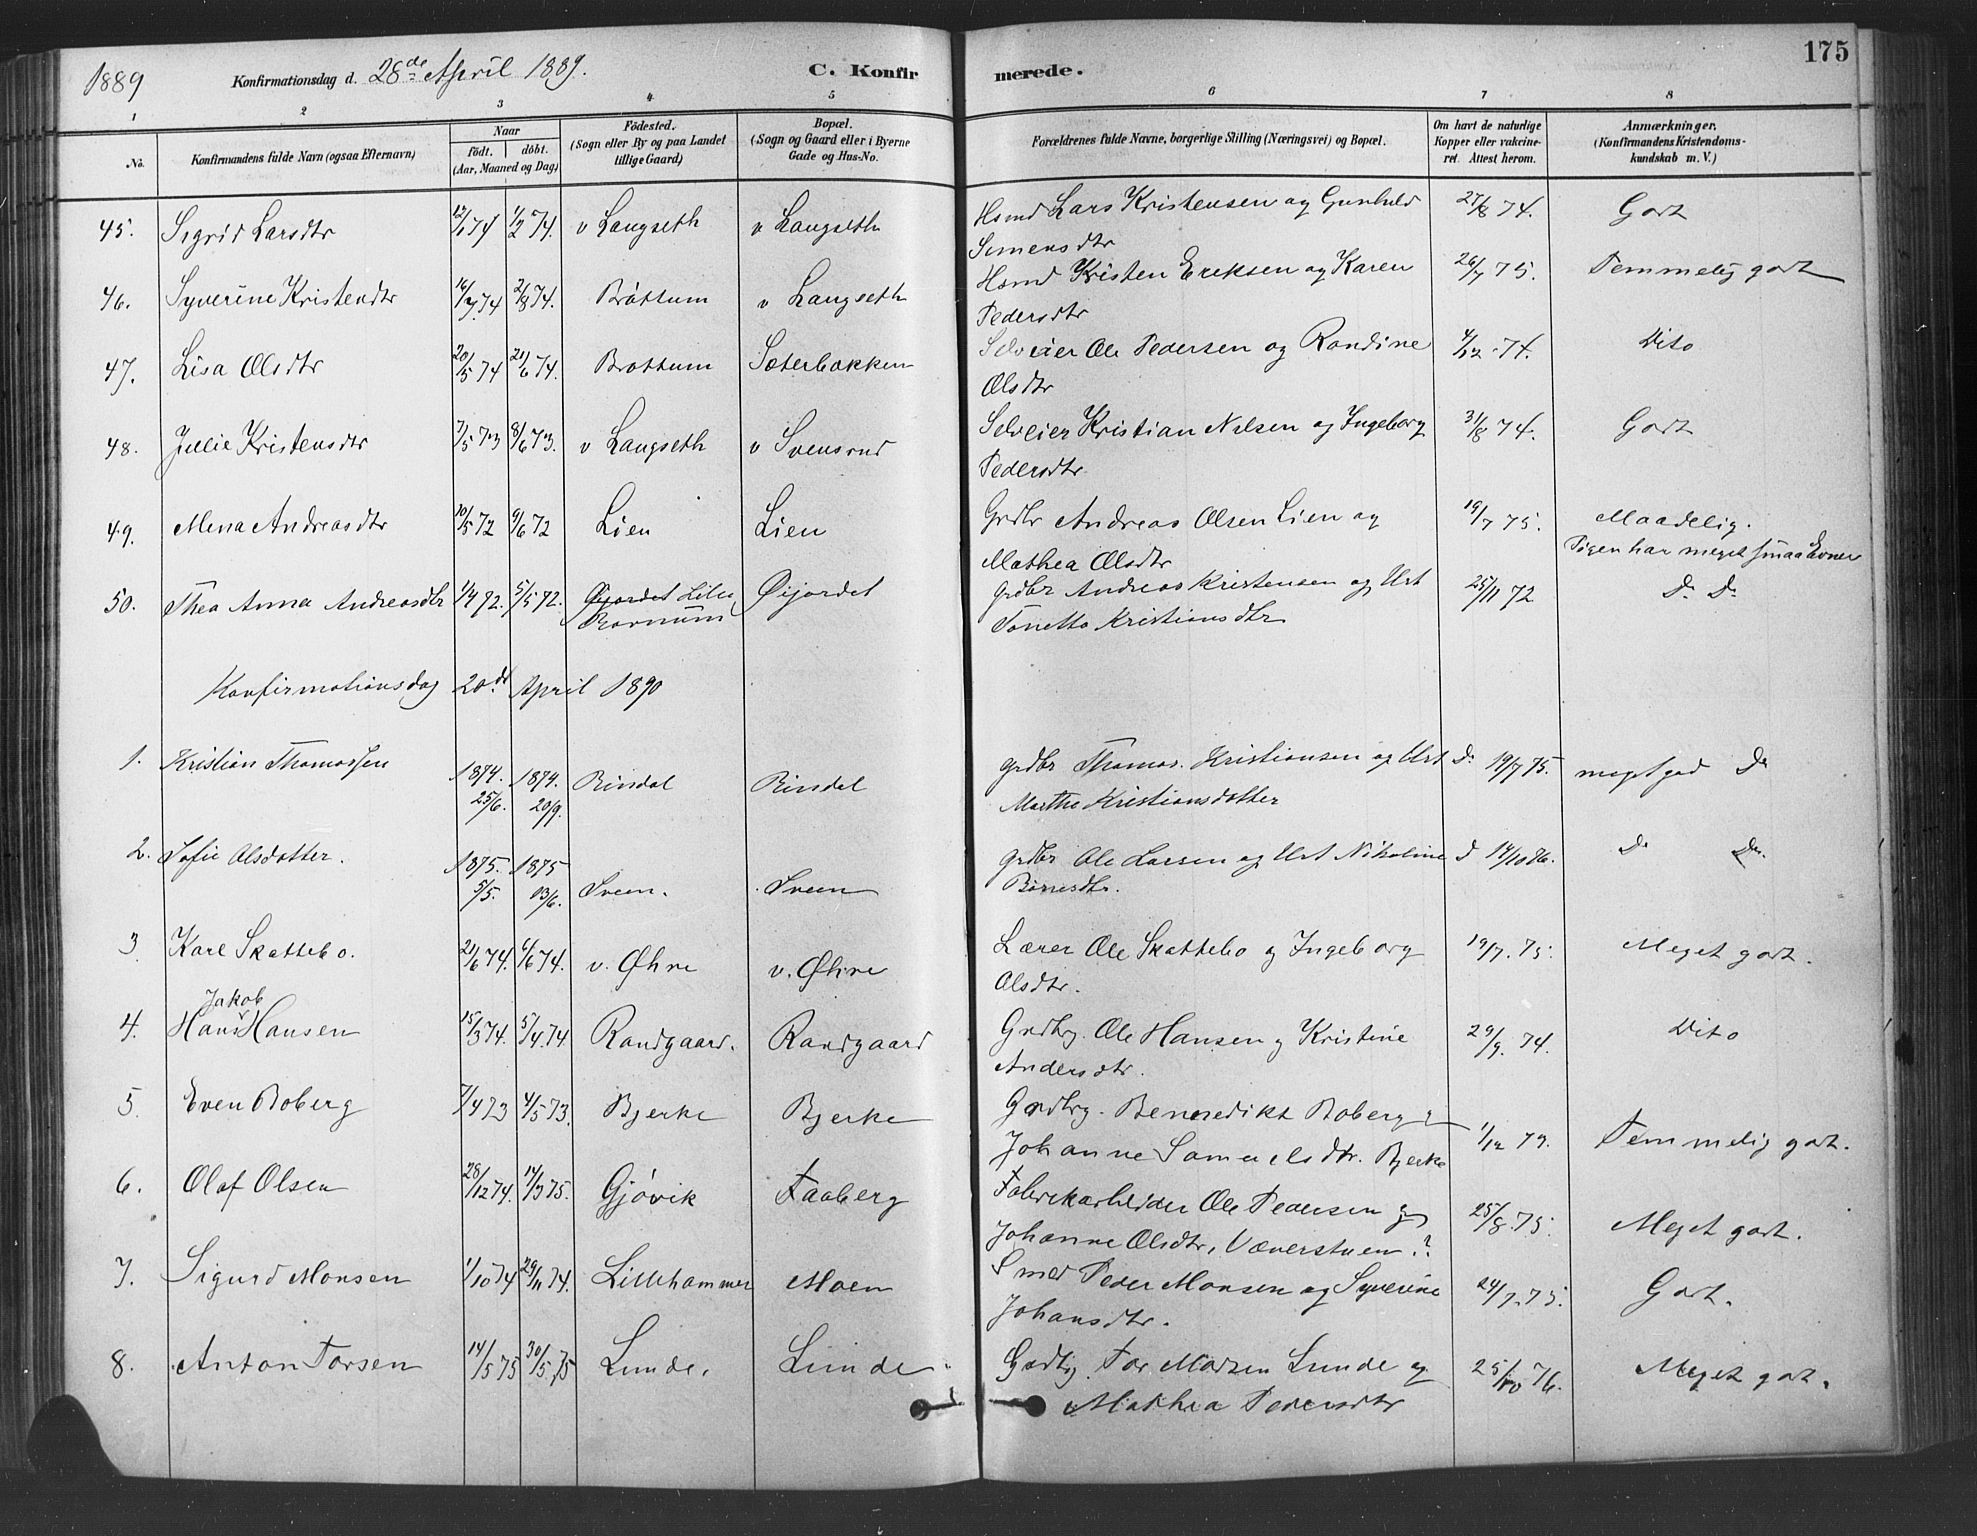 1889 Konfirmationsdag d. 28de April 1889. C. Konfirmerede. 175
1 2 3 4 5 6 7 8
No. Konfirmandens fulde Navn (ogsaa Efternavn) Naar födt. döbt. (Aar, Maaned og Dag) Födested. (Sogn eller By og paa Landet tillige Gaard) Bopæl. (Sogn og Gaard eller i Byerne Gade og Hus-No. Forældrenes fulde Navne, borgerlige Stilling (Næringsvei) og Bopæl. Om havt de naturlige Kopper eller vakcineret. Attest herom. Anmærkninger. (Konfirmandens Kristendomskundskab m. V.)
45. Sigrid Larsdtr 12/1 74 1/2 74. v Langseth v Langseth Hsmd Lars Kristensen og Gunhild 27/8 74. Godt
Simensdtr
46. Syverine Kristendtr 16/7 74 2/8 74. Bröttum v Langseth Hsmd Kristen Eriksen og Karen 26/7 75. Temmelig godt
Pedersdtr
47. Lisa Olsdtr 20/5 74 21/6 74. Brottum Sæterbakken Selveier Ole Pedersen og Randine 4/12 74. Dito
Olsdtr
48. Jullie Kristensdtr 7/5 73 8/6 73. v Langseth v Svensrud Selveier Kristian Nilsen og Ingeborg 31/8 74. Godt
Pedersdtr
49. Mina Andreasdtr 10/5 72 9/6 72 Lien Lien Grdbr Andreas Olsen Lien og 19/7 75. Maadelig.
Mathea Olsdtr Pigen har meget smaa Evner
50. Thea Anna Andreasdtr 1/4 72. 5/5 72. Øijordet Lille Øijordet grdbr Andreas Kristensen og Hst 25/11 72 Do Do
Tonetta Kristiansdtr
Konfirmationsdag 20de April 1890
1. Kristian Thomassen 1874. 25/6. 1874. 20/9. Rindal Rindal grdbr Thomas Kristiansen og Hst Do 19/7 75. meget god Do
Marthe Kristiansdatter
2. Sofie Olsdatter. 1875. 5/5. 1875 13/6. Sveen. Sveen grdbr Ole Larsen og Hst Nikoline D 14/10 76. Do Do
3 Karl Skattebo. 21/6 74. 6/6 74. v. Øhre v. Øhre Lærer Ole Skattebo og Ingeborg 19/7. 75. Meget godt.
Olsdtr.
4. Hans Jakob Hansen 15/3 74. 5/4 74 Randgaard. Randgaard Grdbrg. Ole Hansen og Kristine 29/9. 74. Dito
Andersdtr.
5. Even Boberg 7/4 73 4/5 73. Bjerke Bjerke Grdbrg. Bennedikt Boberg &
Johanne Samuelsdtr. Bjerke 1/12 79. Temmelig godt.
6. Olaf Olsen 28/12 74. 14/3 75. Gjövik Faaberg Fabrikarbeider Ole Pedersen og 25/8. 75. Meget godt.
Johanne Olsdtr, Væverstuen?
7. Sigurd Monsen 1/10 74 29/11 74. Lillehammer Moen Smed Peder Monsen og Syverine 24/7. 75. Godt.
Johansdtr.
8. Anton Torsen 14/5 75 30/5 75 Lunde. Lunde. Grdbrg. Tor Madsen Lunde og 25/10 76. Meget godt.
Mathea Pedersdtr